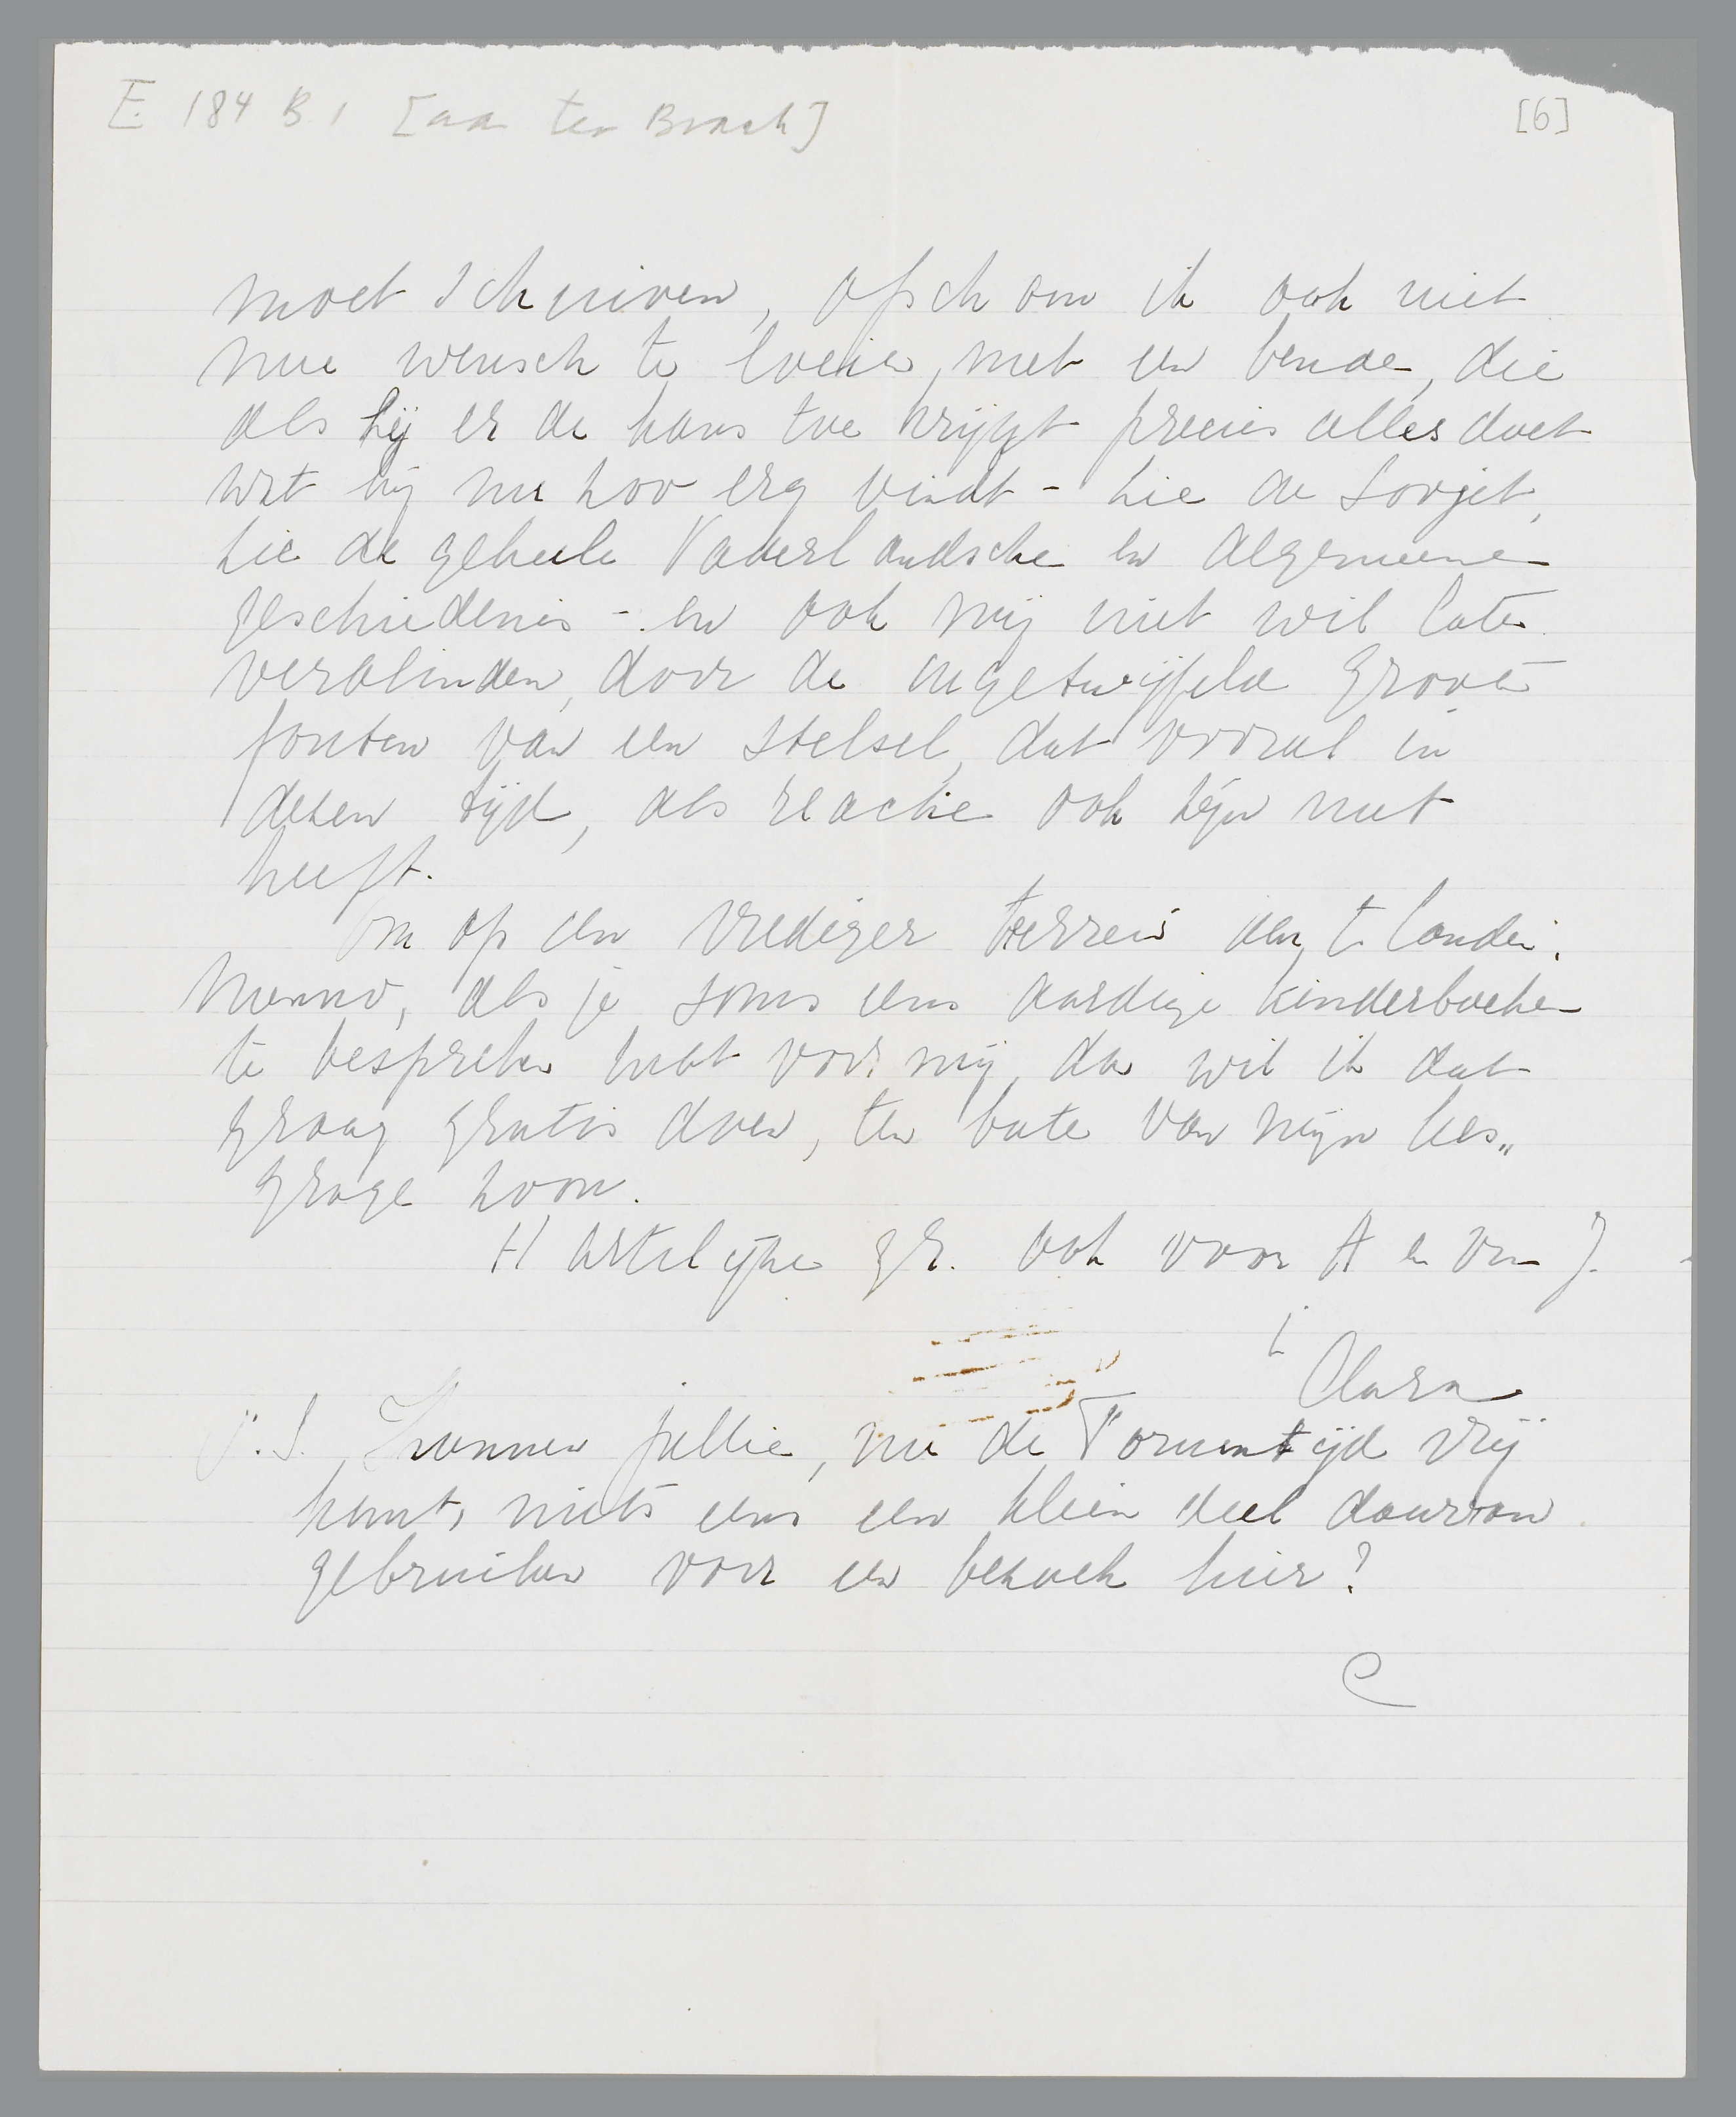 E 184 B.1 [aan ter Braak]
[6]
moet schrijven, ofschoon ik ook niet
mee wensch te loeien, met een bende, die
als hij er de kans toe krijgt precies alles doet
wat hij nu zoo erg vindt - zie de Sovjet,
zie de geheele Vaderlandsche en Algemeene
geschiedenis - en ook mij niet wil laten
verblinden, door de ongetwijfeld groote
fouten van een stelsel, dat vooral in
dezen tijd, als reactie ook zijn nut
heeft.
Om op een vrediger terrein te landen:
Menno, als je soms eens aardige kinderboeken
te bespreken hebt voor mij, dan wil ik dat
graag gratis doen, ten bate van mijn lees„
grage zoon.
Hartelijke gr. ook voor A en von J.
Clara
P.S. Kunnen jullie, nu de Forumtijd vrij
komt, niets eens een klein deel daarvan
gebruiken voor een bezoek hier?
C